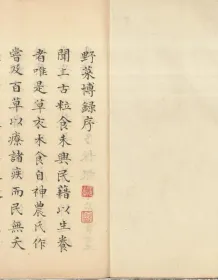 野菜博錄序
聞上古粒食未興民藉以生養
者唯是草衣木食自神農氏作
嘗艾百草以療諸疾而民無夭